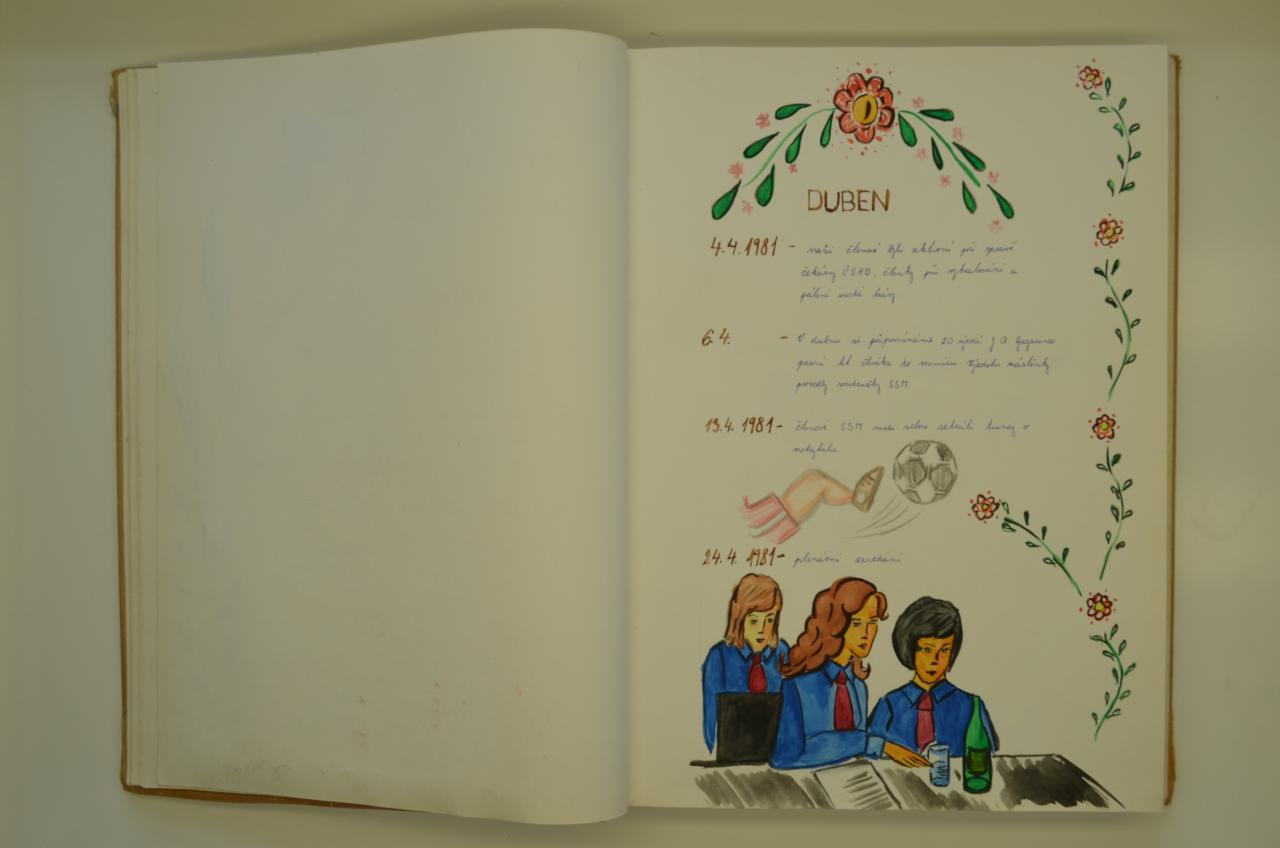 DUBEN
4.4.1981 - naši členové byli aktivní při opravě
čekárny ČSAD, členky při vyhrabování a
pálení suché trávy
6.4. - V dubnu si připomínáme 20 výročí J. A. Gagarina
první let člověka do vesmíru
provedly soudružky SSM.
13.4.1981 - členové SSM mezi sebou sehráli turnaj v
nohejbalu
24.4.1981 - plenární zasedání